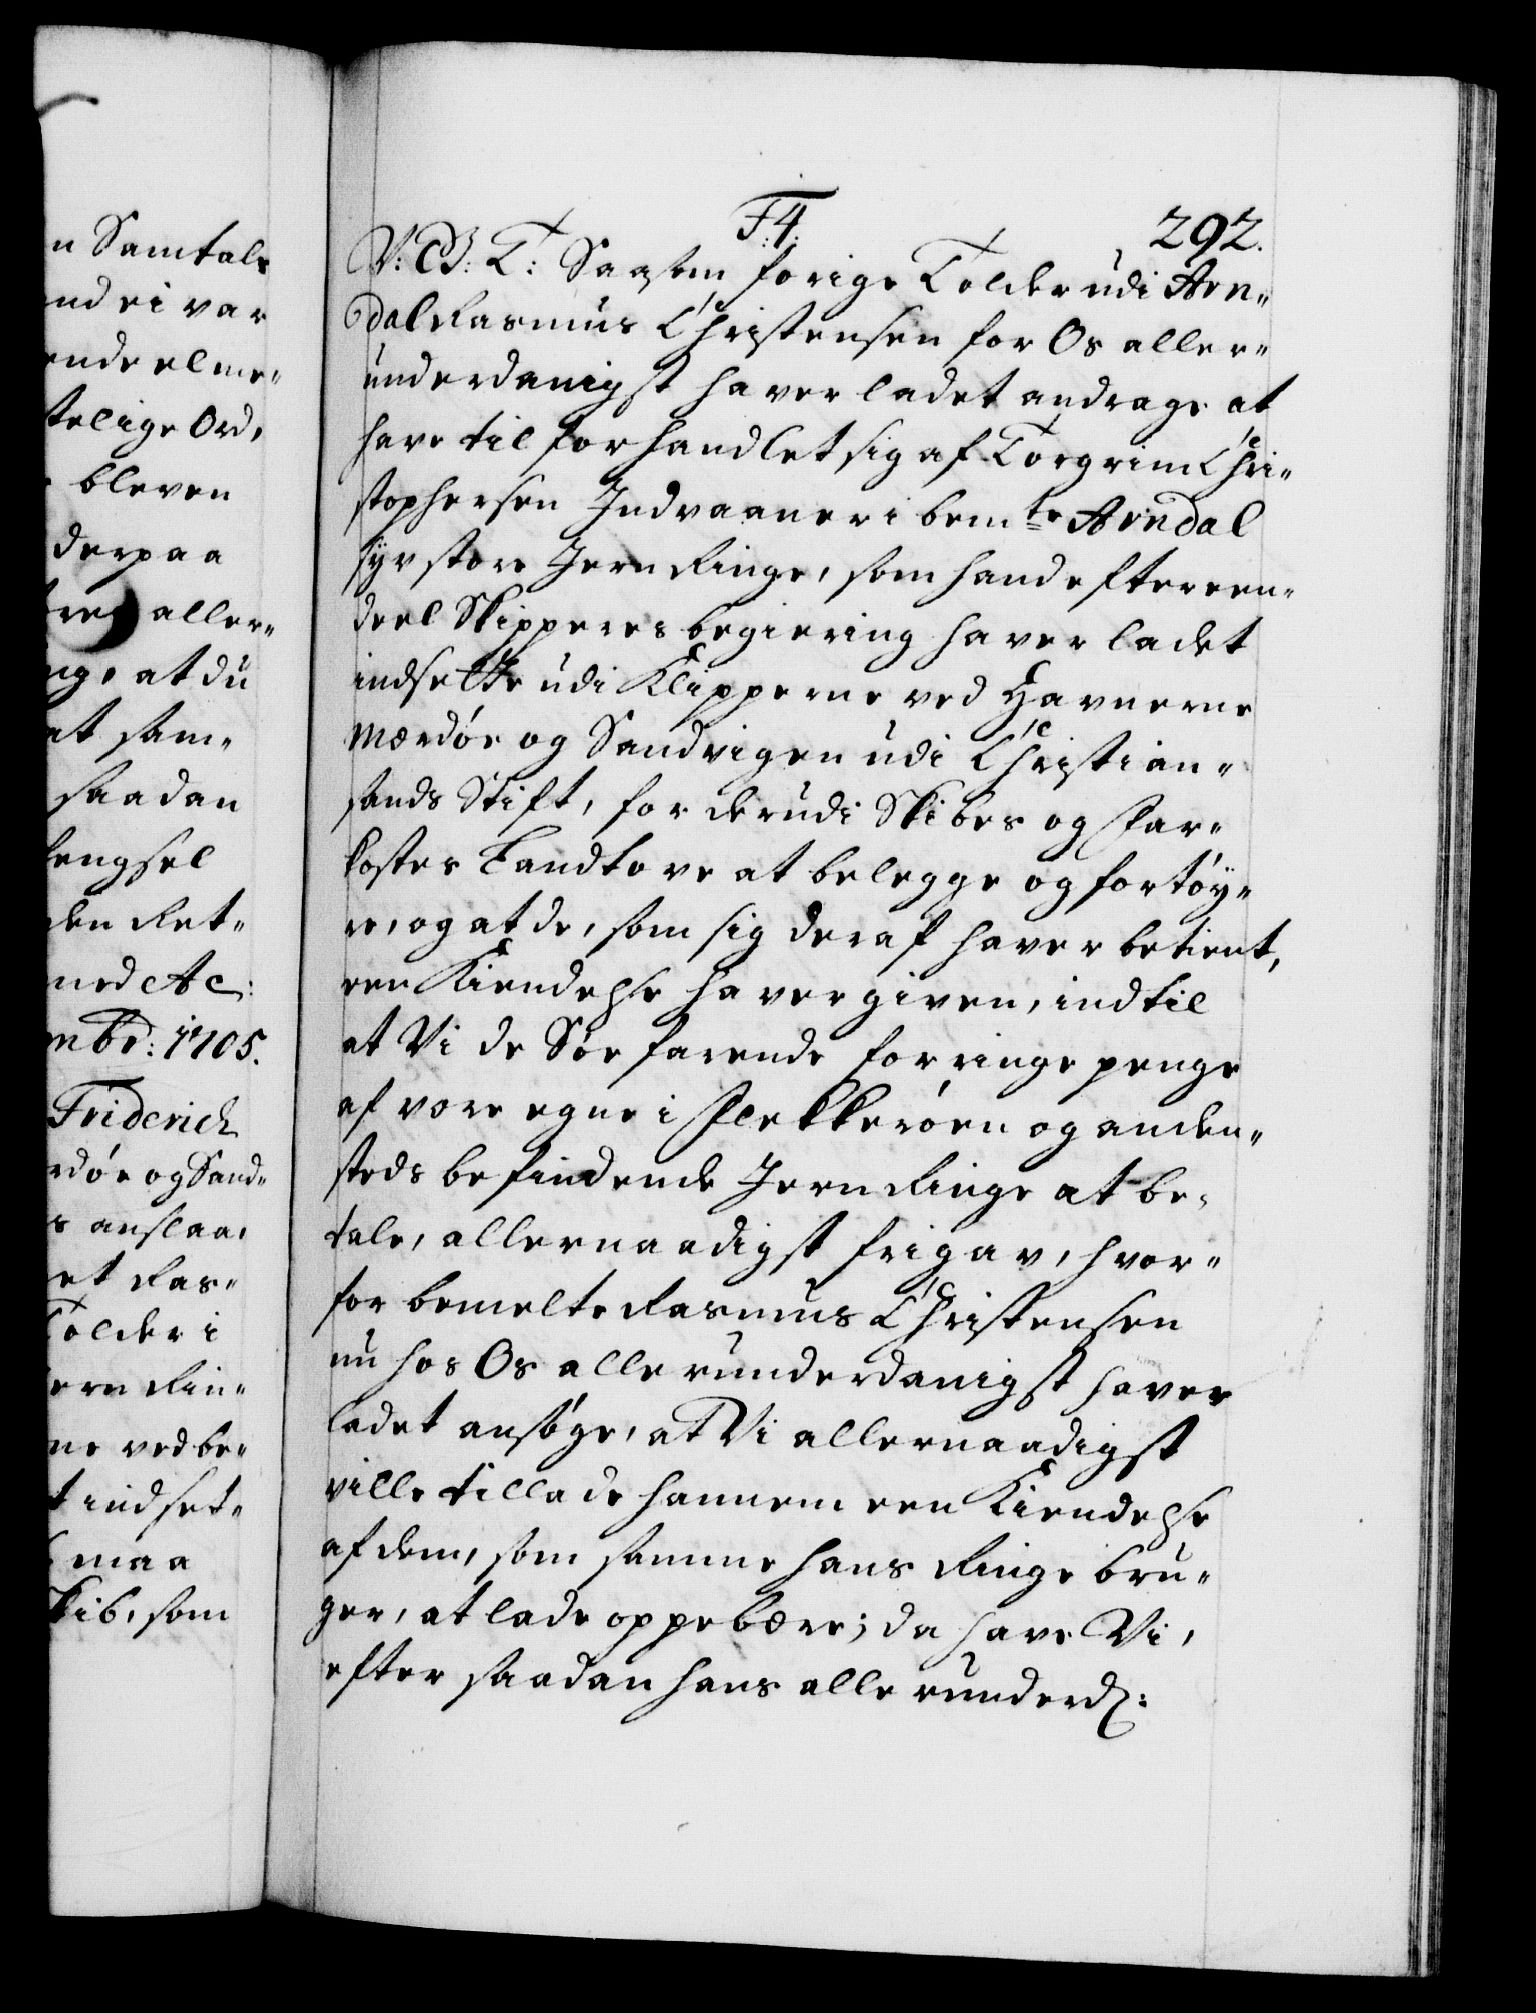 n Samtals
nd ei var
ende elme„
telige Ord,
bleven
derpaa
aller„
ng, at du
at sam„
saadan
engsel
den Ret„
med Ac:
mbr: 1705.
Friderich
rdöe og Sand„
s anslaa,
et Ras„
Tolder i
ern Rin„
ne ved be„
t indset„
maa
kib, som
F:4:
292.
V: G: T: Saasom forige Tolder udi Arn„
dal Rasmus Christensen for Os aller„
underdanigst haver ladet andrage at
have til forhandlet sig af Torgrim Chri„
stophersen Indvaaner i bemte Arndal
syv store Jern Ringe, som hand efter een„
deel Skipperes begiering haver ladet
indsette udi Klipperne ved Havnerne
Mærdöe og Sandvigen udi Christian„
sands Stift, for derudi Skibes og Far„
kostes Landtove at belegge og fortöy„
e, og at de, som sig deraf haver betient,
een Kiendelse haver given, indtil
at Vi de Söefarende for ringe penge
af vore egne i Flekkeröen og anden„
steds befindende Jern Ringe at be„
tale, allernaadigst frigav, hvor„
for bemelte Rasmus Christensen
nu hos Os allerunderdanigst haver
ladet ansöge, at Vi allernaadigst
ville tillade hannem een Kiendelse
af dem, som samme hans Ringe bru„
ger, at lade oppebære; da have Vi,
efter saadan hans allerunderd: